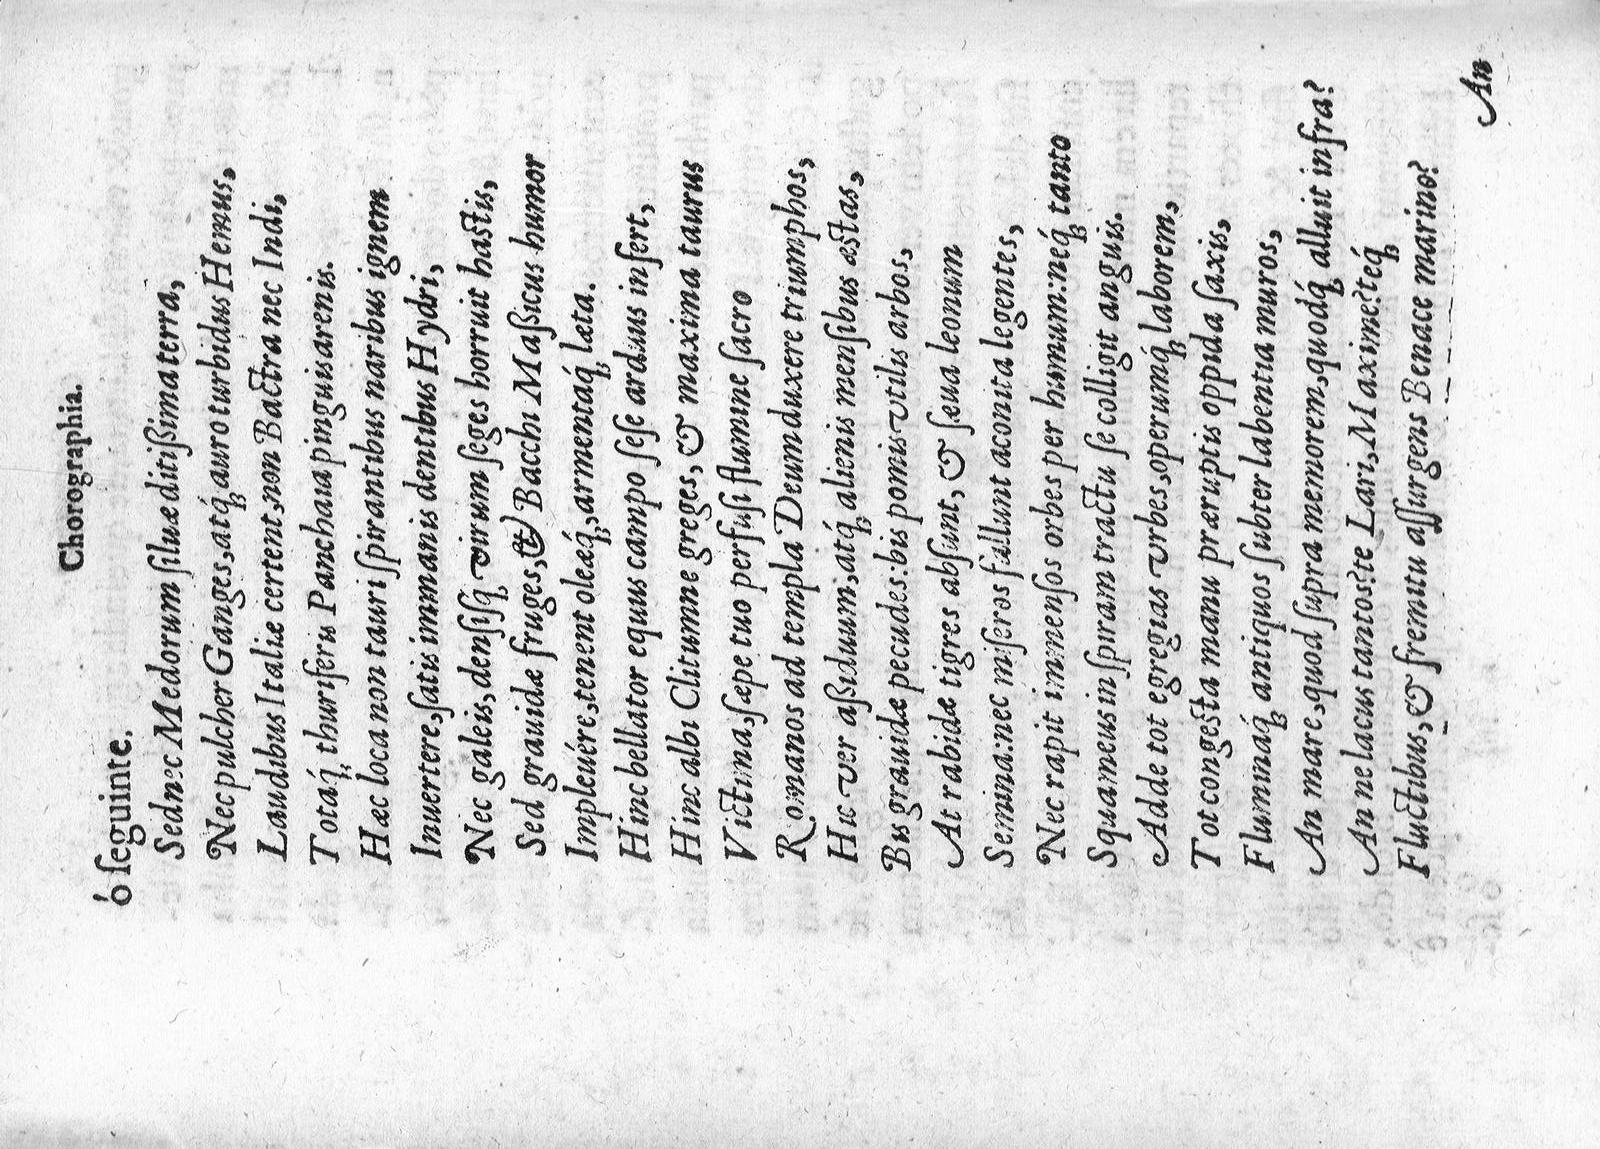 Chorographia.
ó ſeguinte.
Sed nec Medorum ſiluæ ditißima terra,
Nec pulcher Ganges, atq́; auro turbidus Hemus,
Laudibus Italiæ certent, non Bactra nec Indi,
Totaq́; thuriferis Panchaia pinguis arenis.
Hæc loca non tauri ſpirantibus naribus ignem
Inuertere, ſatis immanis dentibus Hydri,
Nec galeis, denſiſq́; virum ſeges horruit haſtis,
Sed grauidæ fruges, & Bacchi Maßicus humor
Impleuére, tenent oleæq́;, armentaq́; læta.
Hinc bellator equus campo ſeſe arduus infert,
Hinc albi Clitumne greges, & maxima taurus
Victima, ſæpe tuo perfuſi flumine ſacro
Romanos ad templa Deum duxere triumphos,
Hic ver aßiduum, atq́; alienis menſibus æstas,
Bis grauidæ pecudes: bis pomis vtilis arbos,
At rabidæ tigres abſunt, & ſeua leonum
Semina: nec miſeros fallunt aconita legentes,
Nec rapit immenſos orbes per humum: neq́; tanto
Squameus in ſpiram tractu ſe colligit anguis.
Adde tot egregias vrbes, operumq́; laborem,
Tot congesta manu præruptis oppida ſaxis,
Fluminaq́; antiquos ſubter labentia muros,
An mare, quod ſupra memorem, quodq́; alluit infra?
An ne lacus tantos: te Lari, Maxime: teq́;
Fluctibus, & fremitu aſſurgens Benace marino?
An